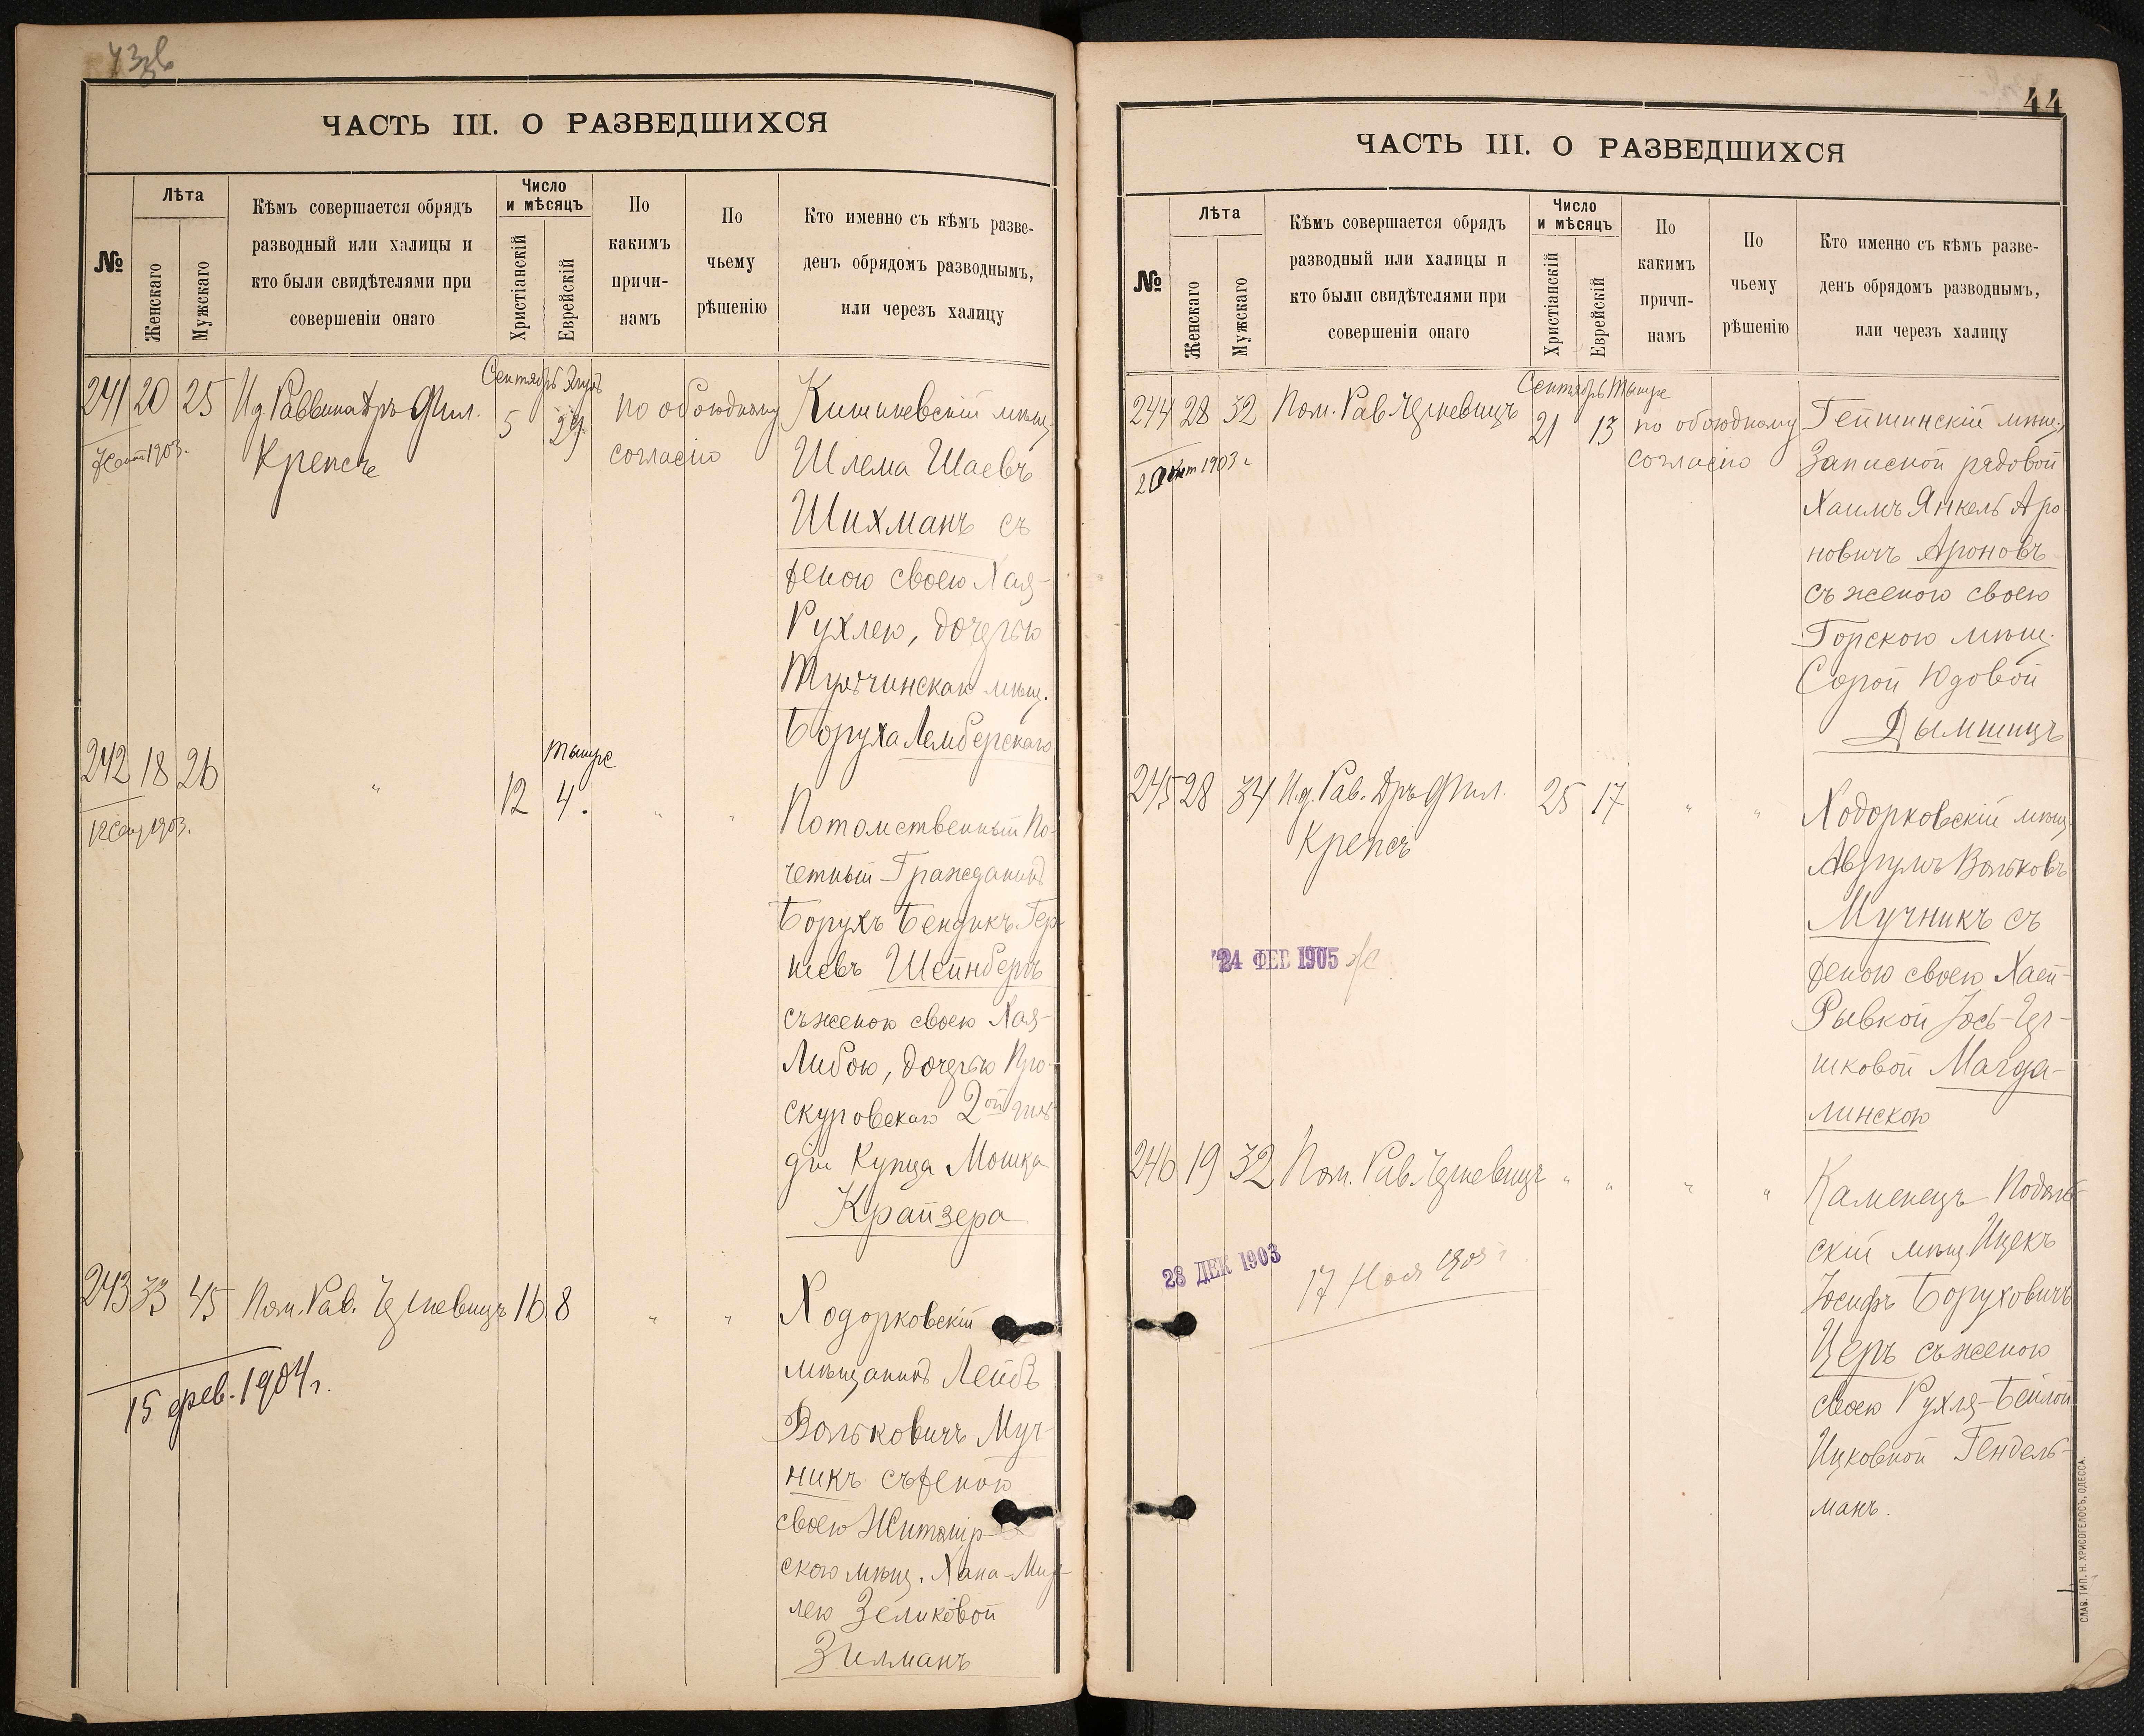 ЧАСТЬ III. О РАЗВЕДШИХСЯ
№
Лѣта
Женскаго
Мужскаго
Кѣмъ совершается обрядъ
разводный или халицы и
кто были свидѣтелями при
совершеніи онаго
Число
и мѣсяцъ
Христіанскій
Еврейскій
По
какимъ
причи-
намъ
По
чьему
рѣшенію
Кто именно съ кѣмъ разве-
денъ обрядомъ разводнымъ,
или черезъ халицу
241 20 25 И.д. Раввина Дръ Фил.
Крепсъ
Сентябрь Элулъ
5 29.
по обоюдному
согласію
Кишиневскій мѣщ.
Шлема Шаевъ
Шихманъ съ
женою своею Хая-
Рухлею, дочерью
Тульчинскаго мѣщ.
Боруха Лембергскаго
242 18 26 "
Тышре
12 4. " "
12 Сен 1903.
Потомственный По-
четный Гражданинъ
Борухъ Бендикъ Гер-
шевъ Шейнбергъ
съ женою своею Хая-
Либою, дочерью Про-
скуровскаго 2ой гиль
діи Купца Мошка
Крайзера
243 33 45 Пом. Рав. Черневицъ 16 8 " "
15 фев. 1904 г.
Ходорковскій
мѣщанинъ Лейбъ
Вольковичъ Муч-
никъ съ женою
своею Житомир-
ской мѣщ. Хана-Мир-
лею Зеликовой
Зилманъ
44
ЧАСТЬ III. О РАЗВЕДШИХСЯ
№
Лѣта
Женскаго
Мужскаго
Кѣмъ совершается обрядъ
разводный или халицы и
кто были свидѣтелями при
совершеніи онаго
Число
и мѣсяцъ
Христіанскій
Еврейскій
По
какимъ
причи-
намъ
По
чьему
рѣшенію
Кто именно съ кѣмъ разве-
денъ обрядомъ разводнымъ,
или черезъ халицу
244 28 32 Пом. Рав. Черневицъ
Сентябрь Тышре
21 13
по обоюдному
согласію
2 Окт 1903 г.
мѣщ.
Запасной рядовой
Хаимъ Янкель Аро
новичъ Ароновъ
съ женою своею
Горскою мѣщ.
Сорой Юдовой
Дымшицъ
245 28 34 И.д. Рав. Дръ Фил.
Крепсъ
25 17 " "
24 ФЕВ 1905
Ходорковскій мѣщ.
Аврумъ Вольковъ
Мучникъ съ
женою своею Хаей-
Рывкой Іось-Гер-
шковой Магда-
линскою
246 19 32 Пом. Рав. Черневицъ " " " "
28 ДЕК 1903
17 Ноя 1905 г.
Каменецъ Подоль-
скій мѣщ. Ицекъ
Іосифъ Боруховичъ
Церъ съ женою
своею Рухля-Бейлой
Ицковной Гендель-
манъ.
СЛАВ. ТИП. Н. ХРИСОГЕЛОСЪ, ОДЕССА.